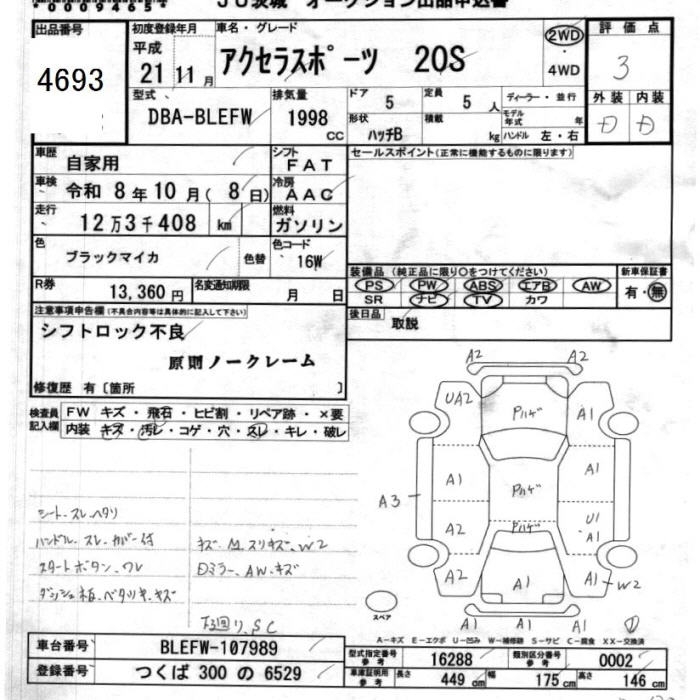 JU茨城 オークション出品申込書
出品番号
4693
初度登録年月
平成
21年 11月
車名・グレード
アクセラスポーツ 20S
2WD
・
4WD
評価点
3
型式
DBA-BLEFW
排気量
1998 CC
ドア 5
定員 5人
ディーラー・並行
形状 ハッチB
積載 kg
モデル年式 年
ハンドル 左・右
外装 内装
D D
車歴 自家用
シフト FAT
セールスポイント(正常に機能するものに限ります)
車検 令和 8年10月(8日)
冷房 AAC
走行 12万3千408 km
燃料 ガソリン
色 ブラックマイカ 色替
色コード 16W
R券 13,360円
名変通知期限 月 日
装備品(純正品に限り○をつけてください)
PS PW ABS エアB AW
SR ナビ TV カワ
新車保証書
有・無
後日品 取説
注意事項申告欄(不具合内容等は具体的に記入して下さい)
シフトロック不良
原則ノークレーム
修復歴 有〔箇所 〕
検査員記入欄
FW キズ・飛石・ヒビ割・リペア跡・×要
内装 キズ・汚レ・コゲ・穴・スレ・キレ・破レ
シート・スレ・ヘタリ
ハンドル・スレ・カバー付
スタートボタン・ワレ
キズ・凹スリキズ、W2
Dミラー、AW、キズ
下廻り、SC
A2 A2
UA2 Pハゲ A1
A1 Pハゲ A1
A3
A2 Pハゲ U1 A1
A2 A1 A1 W2
A1 A1 A1
スペア
A-キズ E-エクボ U-凹み W-補修跡 S-サビ C-腐食 XX-交換済
車台番号 BLEFW-107989
登録番号 つくば 300 の 6529
型式指定番号 参考 16288
類別区分番号 参考 0002
車庫証明用 参考
長さ 449cm 幅 175cm 高さ 146cm